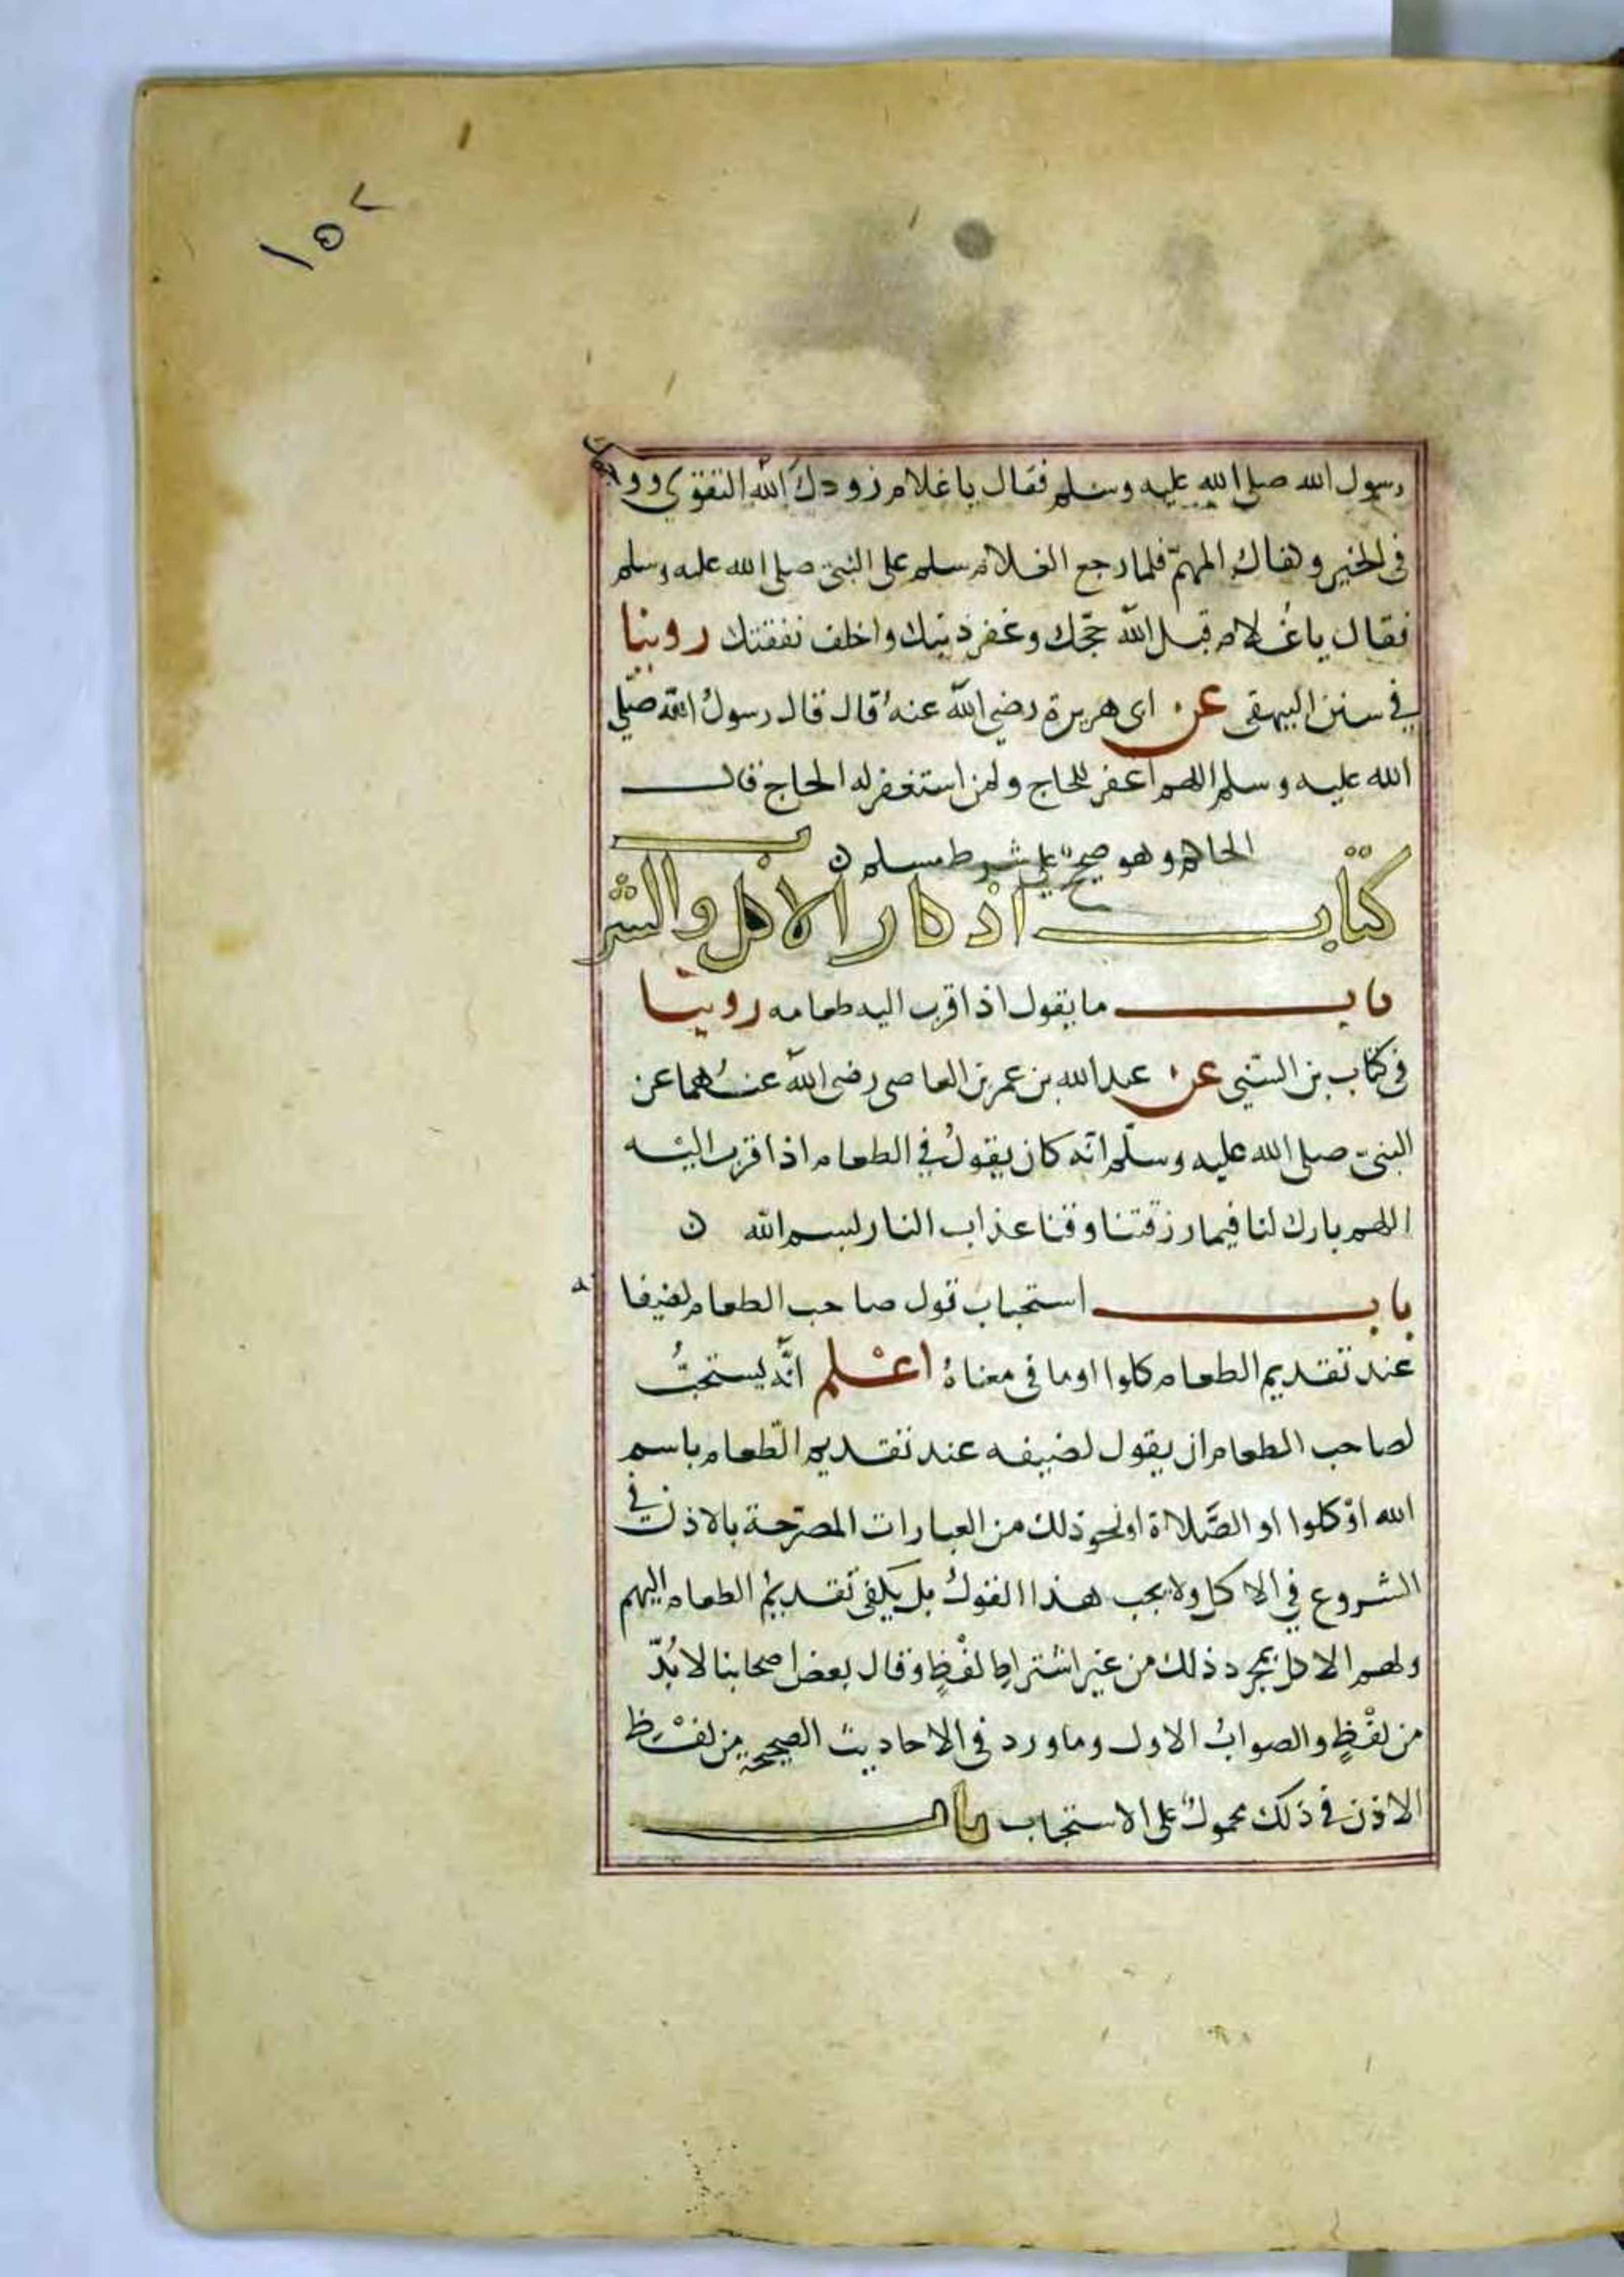 ١٥٢
رسول الله صلى الله عليه وسلم فقال يا غلام زودك الله التقوى ووجهك
فى الخير وكفاك المهمّ فلما رجع الغلام سلم على النبىّ صلى الله عليه وسلم
فقال يا غلام قبل الله حجّك وغفر ذنبك واخلف نفقتك روينا
في سنن البيهقى عن ابى هريرة رضي الله عنهُ قال قال رسولُ الله صلّى
الله عليه وسلم اللهم اغفر للحاج ولمن استغفر له الحاج قال
الحاكم وهو صحيحٌ على شرط مسلم ن
كتاب اذكار الاكل والشرب
باب ما يقول اذا قرب اليه طعامه روينا
فى كتاب بن السنّي عن عبد الله بن عمر بن العاصى رضى الله عنهُما عن
النبىّ صلى الله عليه وسلّم انّه كان يقولُ في الطعام اذا قرب اليْه
اللهم بارك لنا فيما رزقتنا وقنا عذاب النار بسم الله ن
باب استحباب قول صاحب الطعام لضيفانه
عند تقديم الطعام كلوا او ما فى معناهُ اعْلم انَّه يستحبُّ
لصاحب الطعام ان يقول لضيفه عند تقديم الطّعام باسم
الله اوْ كلوا او الصَّلاة او نحو ذلك من العبارات المصرّحة بالاذن في
الشروع في الاكل ولا يجب هذا القولُ بل يكفى تقديمُ الطعام اليهم
ولهم الاكل بمجرد ذلك من غير اشتراطِ لفْظٍ وقال بعض اصحابنا لا بُدّ
من لفْظٍ والصوابُ الاول وما ورد فى الاحاديث الصحيحة من لفْظ
الاذن في ذلك محمولٌ على الاستحباب باب